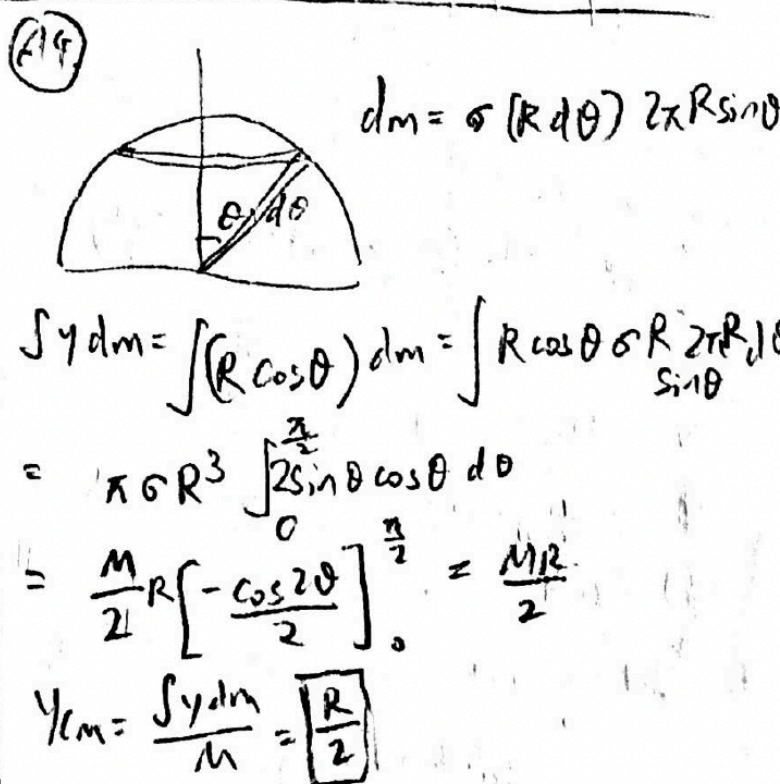 dm = σ (R dθ) 2πR sinθ
θ dθ
∫ y dm = ∫ (R cosθ) dm = ∫ R cosθ σ R 2πR dθ
sinθ
= πσR³ ∫₀^(π/2) 2sinθ cosθ dθ
= M/2 R [ - cos2θ/2 ]₀^(π/2) = MR/2
Y_CM = ∫ y dm / M = R/2